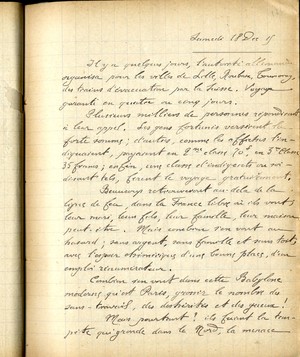 Samedi 18 Dec 15
Il y a quelques jours, l'autorité allemande
organisa pour les villes de Lille, Roubaix, Tourcoing,
des trains d'évacuation par la Suisse. Voyage
garanti en quatre ou cinq jours.
Plusieurs milliers de personnes répondirent
à leur appel. Les gens fortunés versèrent la
forte somme; d'autres, comme les affiches l'in-
diquaient, payaient en 2me classe 70f. en 3me classe
35 francs; enfin une classe d'indigents ou soi-
disant tels, firent le voyage gratuitement.
Beaucoup retrouveront au delà de la
ligne de feu, dans la France libre où ils vont
leur mari, leur fils, leur famille, leur maison
peut-être. Mais combien s'en vont au
hasard; sans argent, sans famille et sans toit
avec l'espoir d'un bonne place, d'un
emploi rémunérateur.
Combien s'en vont dans cette Babylone
moderne qu'est Paris, grossir le nombre des
sans-travail, des déshérités et des gueux!
Mais pourtant! ils fuient la tem-
pête qui gronde dans le Nord, la menace